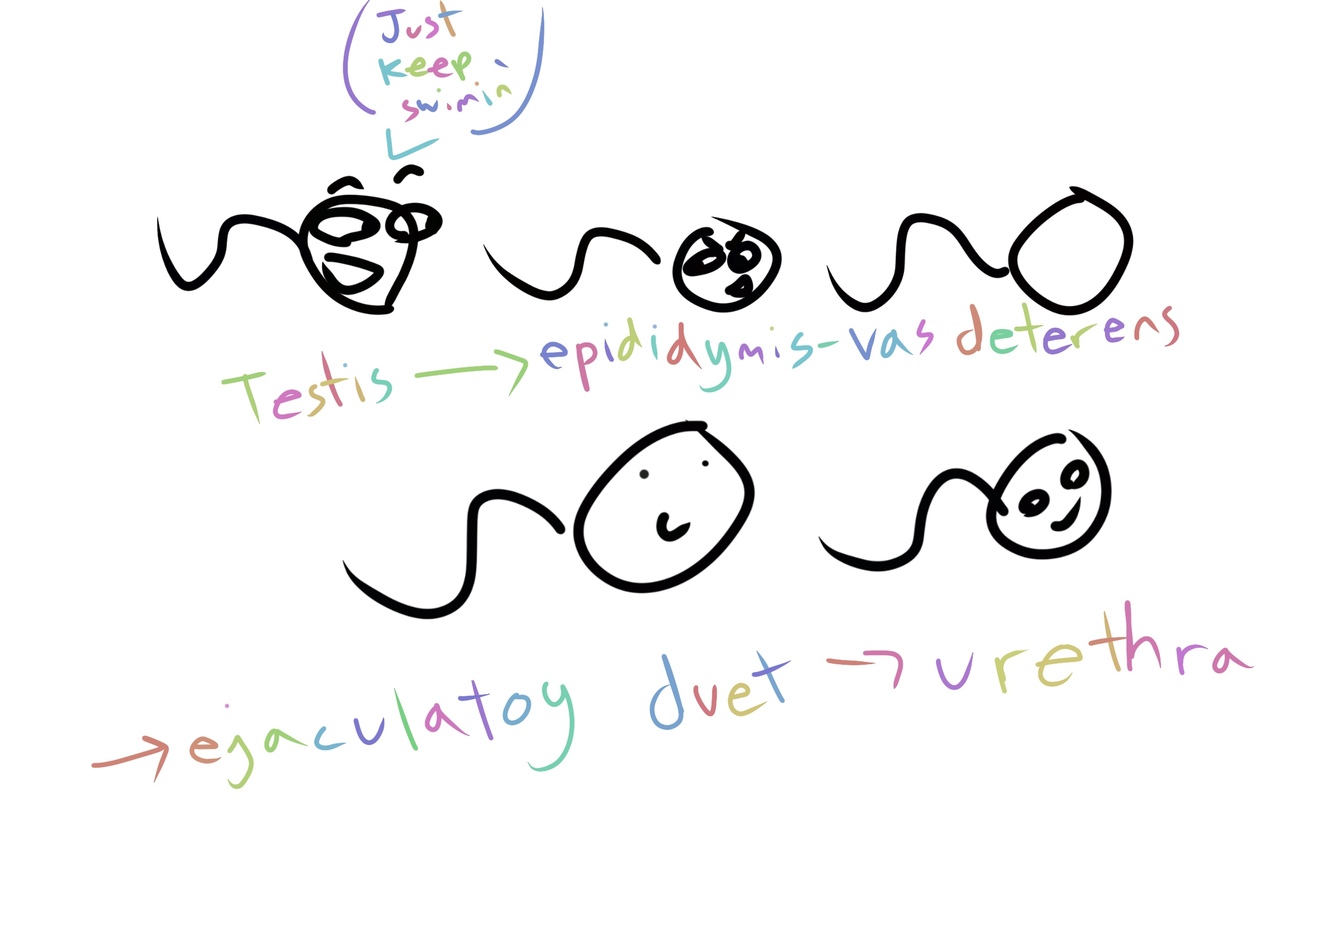 Just
keep
swimin`
Testis → epididymis-vas deterens
→ ejaculatoy duet → urethra